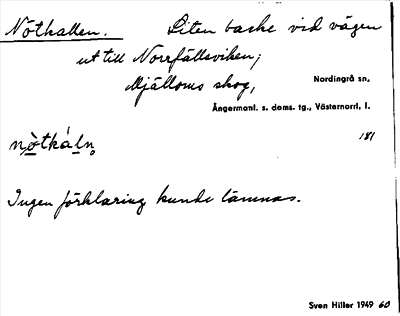 Nötkallen. Liten backe vid vägen
ut till Norrfällsviken;
Mjälloms skog, Nordingrå sn,
Ångermanl. s. doms. tg., Västernorrl. l.
nò̱tkáln̥ 181
Ingen förklaring kunde lämnas.
Sven Hiller 1949 60